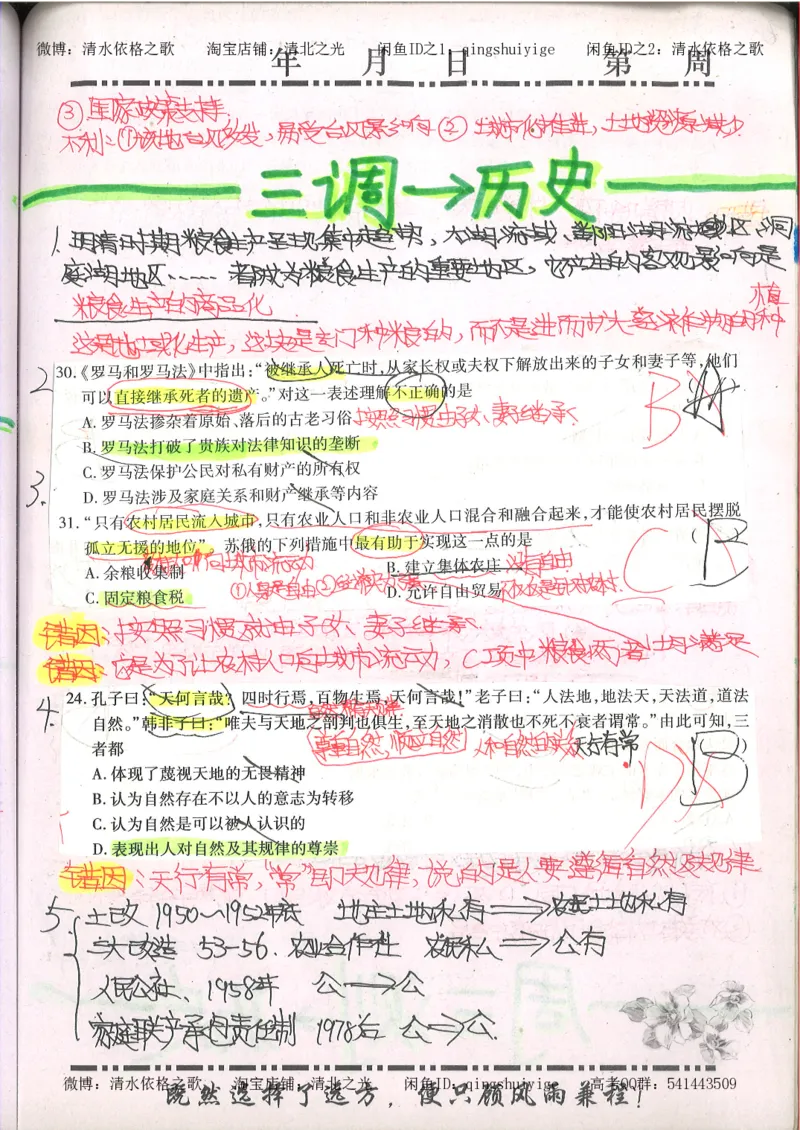 微博：清水依格之歌 淘宝店铺：清北之光 闲鱼ID之1：qingshuiyige 闲鱼ID之2：清水依格之歌
年 月 日 第 周
③国家政策支持，
不利：①该地台风多发，易受台风影响 ②土城市化推进，土地资源减少
三调→历史
1. 明清时期粮食生产呈现集中趋势，太湖流域、鄱阳湖流域地区、洞
庭湖地区……者成为粮食生产的重要地区，它产生的客观影响是
粮食生产的商品化
植
这是地域化生产，这块是专门种粮食的，而不是进而扩大经济作物的种
2 30.《罗马和罗马法》中指出：“被继承人死亡时，从家长权或夫权下解放出来的子女和妻子等，他们
可以直接继承死者的遗产。”对这一表述理解不正确的是
A. 罗马法掺杂着原始、落后的古老习俗 按照习惯由子女、妻子继承
B
B. 罗马法打破了贵族对法律知识的垄断
C. 罗马法保护公民对私有财产的所有权
3. D. 罗马法涉及家庭关系和财产继承等内容
31.“只有农村居民流入城市，只有农业人口和非农业人口混合和融合起来，才能使农村居民摆脱
孤立无援的地位”。苏俄的下列措施中最有助于实现这一点的是 （B）
C
A. 余粮收集制 B. 建立集体农庄 没自由
①人身是自由②
C. 固定粮食税 D. 允许自由贸易
错因：按照习惯或由子女、妻子继承
错因：它是为了让农村人口向城市流动，C项中粮食两者
4. 24. 孔子曰：“天何言哉？四时行焉，百物生焉，天何言哉！”老子曰：“人法地，地法天，天法道，道法
自然。”韩非子曰：“唯夫与天地之剖判也俱生，至天地之消散也不死不衰者谓常。”由此可知，三
者都 尊重自然，顺应自然 人和自然的关系 天行有常 （B）
D
A. 体现了蔑视天地的无畏精神
B. 认为自然存在不以人的意志为转移
C. 认为自然是可以被人认识的
D. 表现出人对自然及其规律的尊崇
错因：天行有常，“常”即为规律，说的是人要遵循自然及规律
5. 土改 1950~1952年底 地主土地私有⇒农民土地私有
三大改造 53-56. 农业合作社 农民私⇒公有
人民公社、1958年 公→公
家庭联产承包责任制 1978后 公⇒公.
微博：清水依格之歌 淘宝店铺：清北之光 闲鱼ID：qingshuiyige 高考QQ群：541443509
既然选择了远方，便只顾风雨兼程！